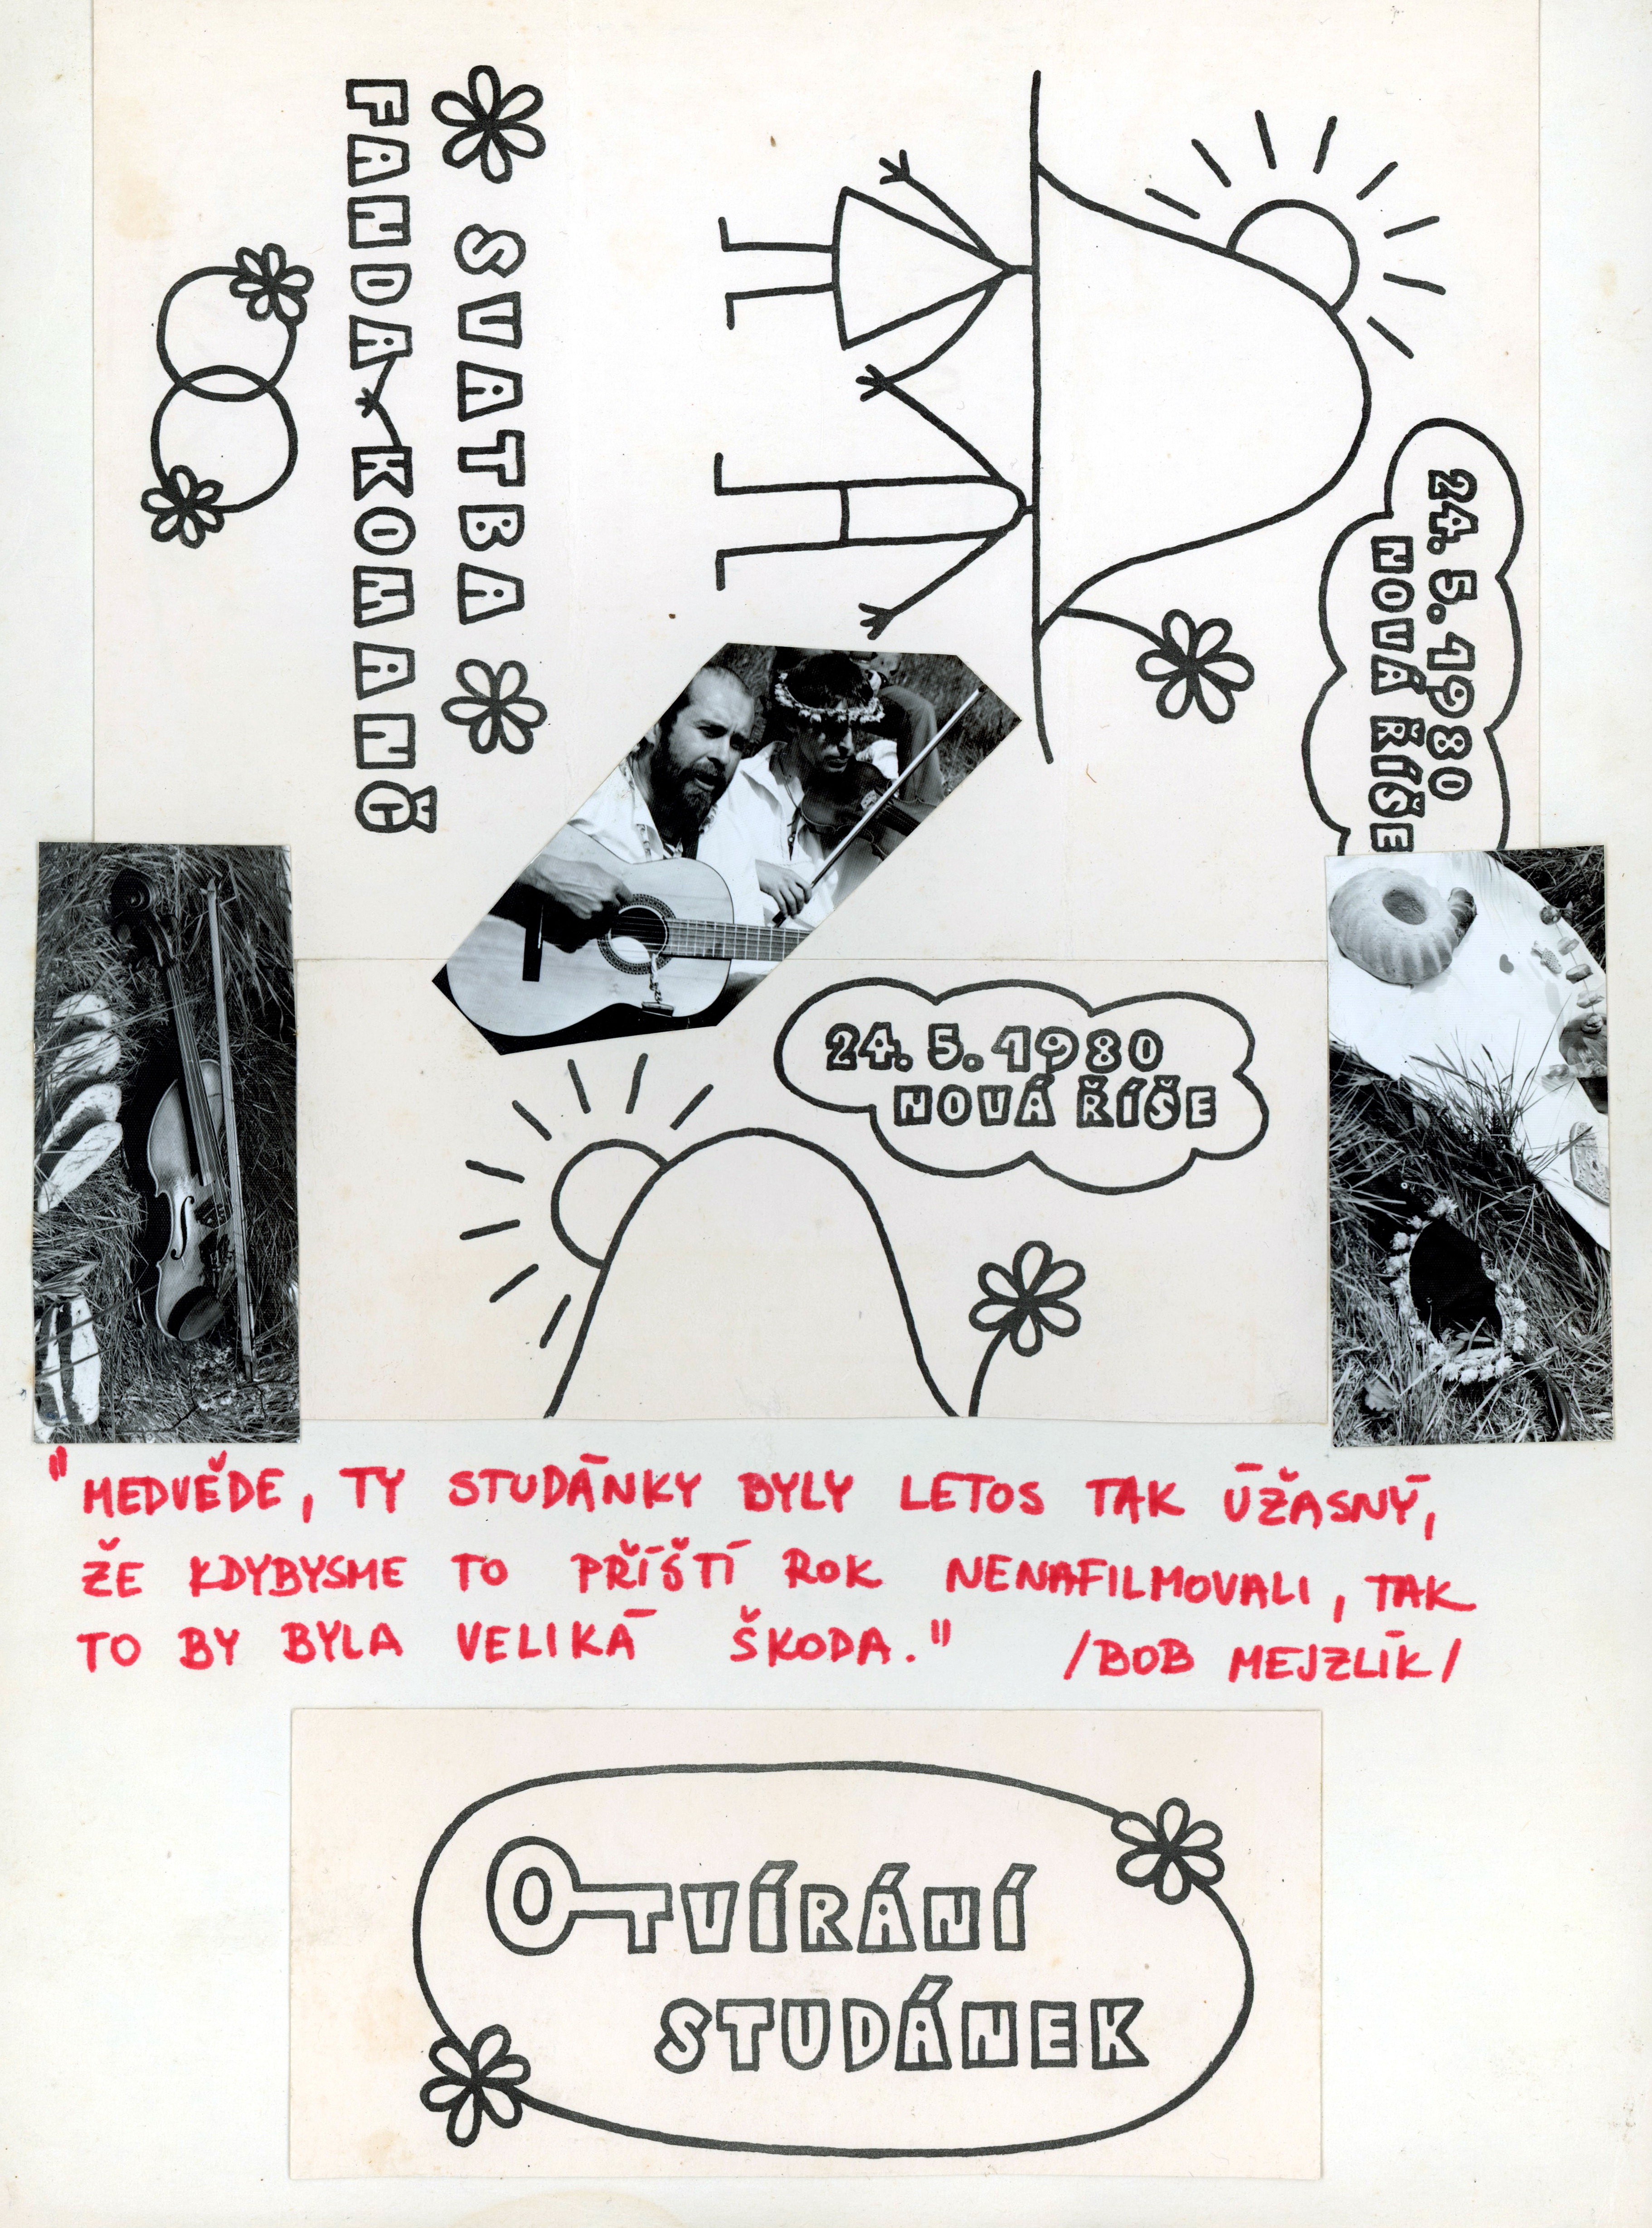 24. 5. 1980
NOVÁ ŘÍŠE
SVATBA
FANDA KOMANČ
24. 5. 1980
NOVÁ ŘÍŠE
"MEDVĚDE, TY STUDÁNKY BYLY LETOS TAK ÚŽASNÝ,
ŽE KDYBYSME TO PŘÍŠTÍ ROK NENAFILMOVALI, TAK
TO BY BYLA VELIKÁ ŠKODA." /BOB MEJZLÍK/
OTVÍRÁNÍ
STUDÁNEK